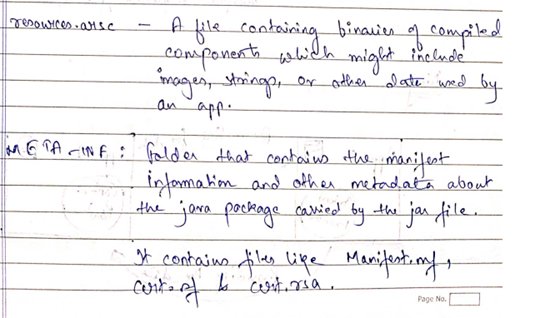 resources.arsc — A file containing binaries of compiled
components which might include
images, strings, or other data used by
an app.
META-INF : folder that contains the manifest
information and other metadata about
the java package carried by the jar file.
It contains files like Manifest.mf,
cert.sf & cert.rsa.
Page No.